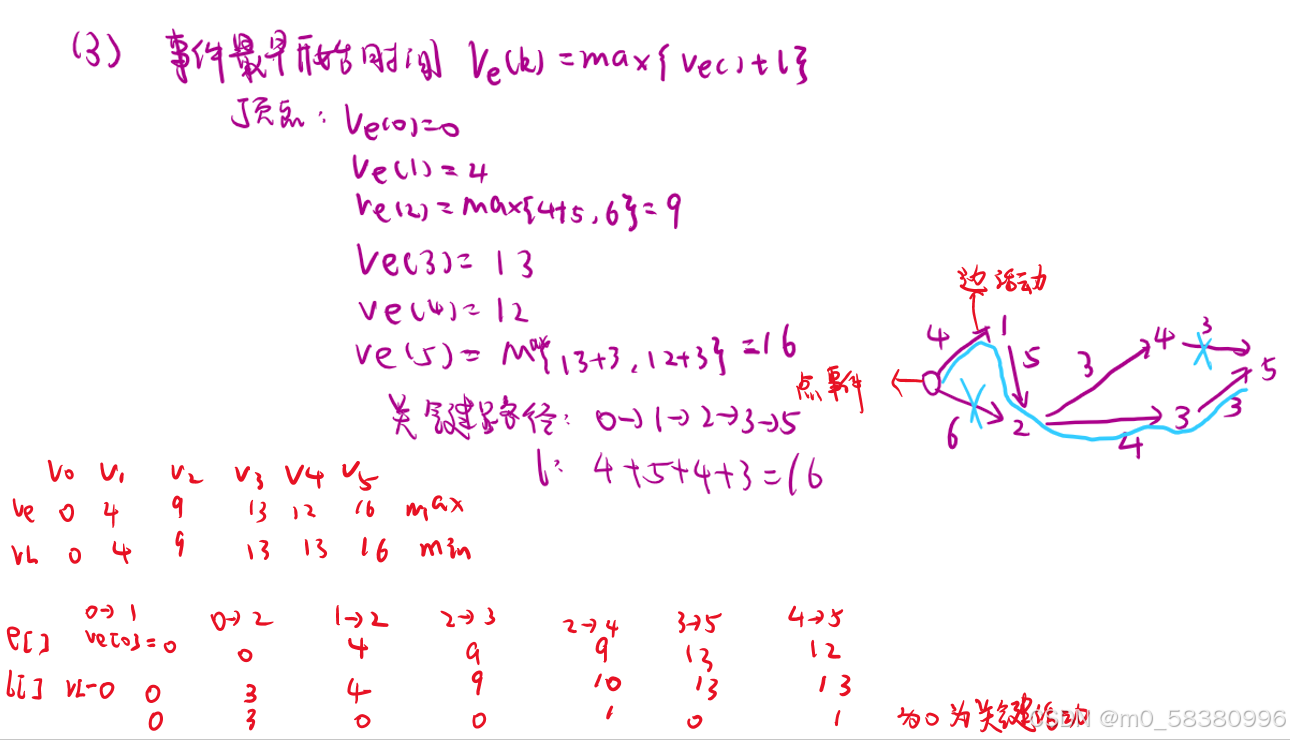 (3) 事件最早开始时间 Ve(k)=max{ve()+l}
顶点: Ve(0)=0
Ve(1)=4
Ve(2)=max{4+5,6}=9
Ve(3)=13
ve(4)=12
ve(5)=max{13+3,12+3}=16
关键路径: 0→1→2→3→5
l: 4+5+4+3=16
边活动
点事件
4 1 5 3 4 3 5
6 2 4 3 3
V0 V1 V2 V3 V4 V5
Ve 0 4 9 13 12 16 max
VL 0 4 9 13 13 16 min
0→1 0→2 1→2 2→3 2→4 3→5 4→5
e[] ve[0]=0 0 4 9 9 13 12
l[] VL-0 0 3 4 9 10 13 13
0 3 0 0 1 0 1 为0为关键活动
CSDN @m0_58380996